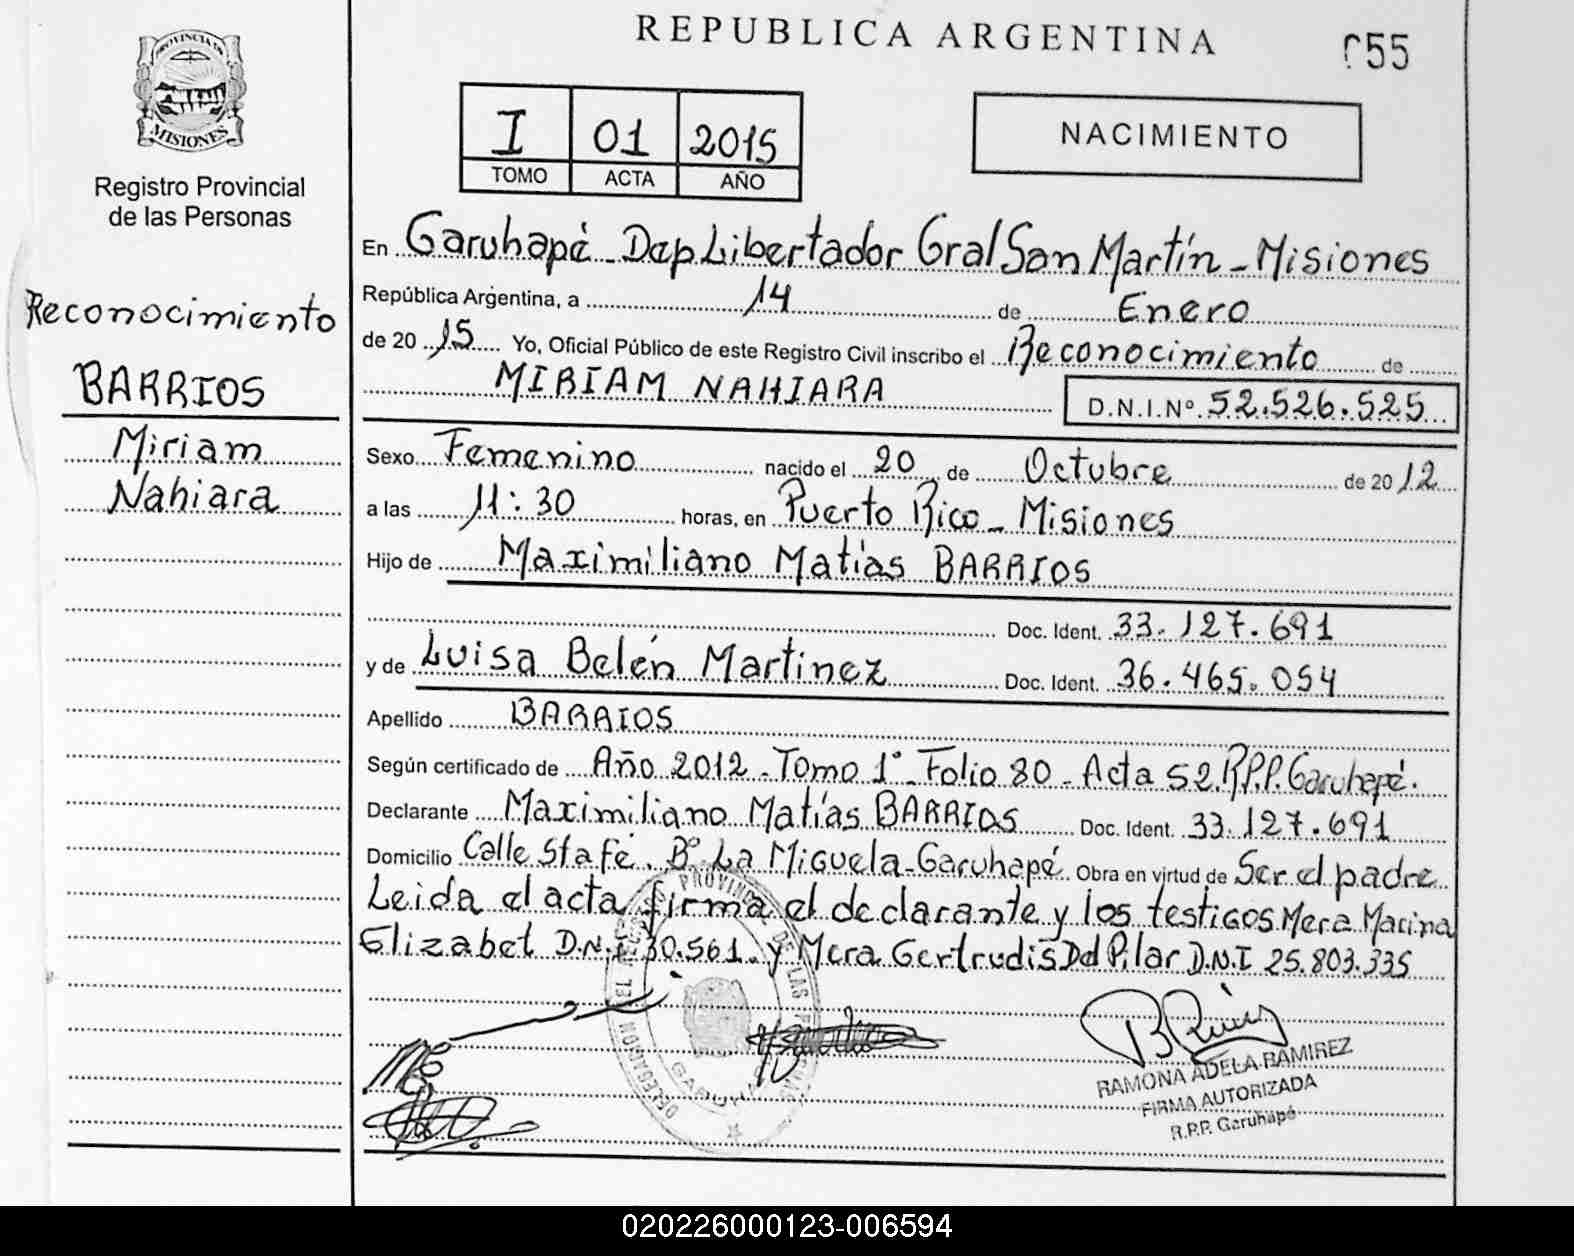 REPUBLICA ARGENTINA
055
PROVINCIA DE
MISIONES
Registro Provincial
de las Personas
I 01 2015
TOMO ACTA AÑO
NACIMIENTO
Reconocimiento
BARRIOS
Miriam
Nahiara
En Garuhapé - Dep Libertador Gral San Martín - Misiones
República Argentina, a 14 de Enero
de 20 15 Yo, Oficial Público de este Registro Civil inscribo el Reconocimiento de
MIRIAM NAHIARA D.N.I.Nº 52.526.525
Sexo Femenino nacido el 20 de Octubre de 20 12
a las 11:30 horas, en Puerto Rico - Misiones
Hijo de Maximiliano Matías BARRIOS
Doc. Ident. 33.127.691
y de Luisa Belén Martinez Doc. Ident. 36.465.054
Apellido BARRIOS
Según certificado de Año 2012 - Tomo 1º - Folio 80 - Acta 52 R.P.P. Garuhapé.
Declarante Maximiliano Matías BARRIOS Doc. Ident. 33.127.691
Domicilio Calle Sta fé. Bº La Miguela - Garuhapé. Obra en virtud de Ser el padre
Leida el acta firma el declarante y los testigos Mera Marina
Elizabet D.N.I 30.561. y Mera Gertrudis Del Pilar D.N.I 25.803.335
RAMONA ADELA RAMIREZ
FIRMA AUTORIZADA
R.P.P. Garuhapé
020226000123-006594